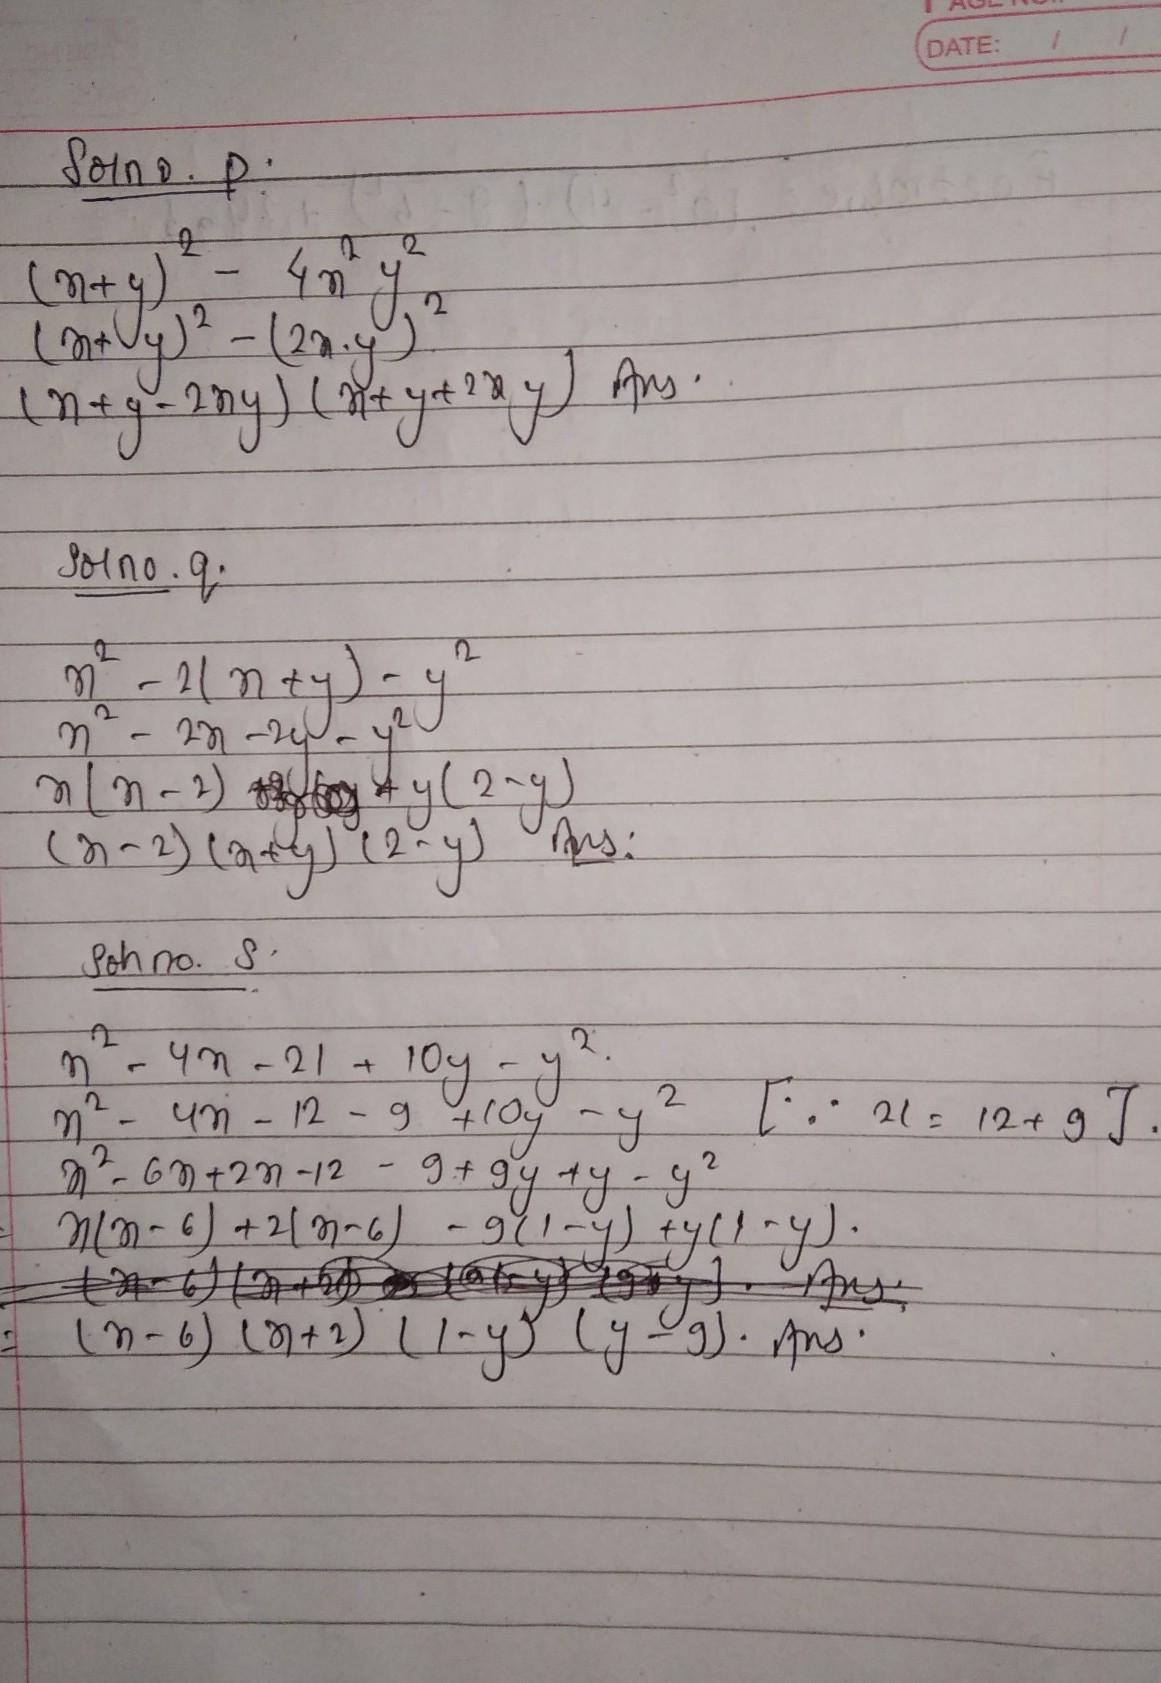 PAGE NO.:
DATE: / /
Soln o. p.
(x+y)² - 4x²y²
(x+y)² - (2x.y)²
(x+y-2xy) (x+y+2xy) Ans.
Sol no. q.
x² - 2(x+y) - y²
x² - 2x - 2y - y²
x(x-2) + y(2-y)
(x-2) (x+y) (2-y) Ans:
Soln no. S.
x² - 4x - 21 + 10y - y².
x² - 4x - 12 - 9 + 10y - y² [∵ 21 = 12+9].
x² - 6x + 2x - 12 - 9 + 9y + y - y²
= x(x-6) + 2(x-6) - 9(1-y) + y(1-y).
= (x-6) (x+2) (1-y) (y-9). Ans.